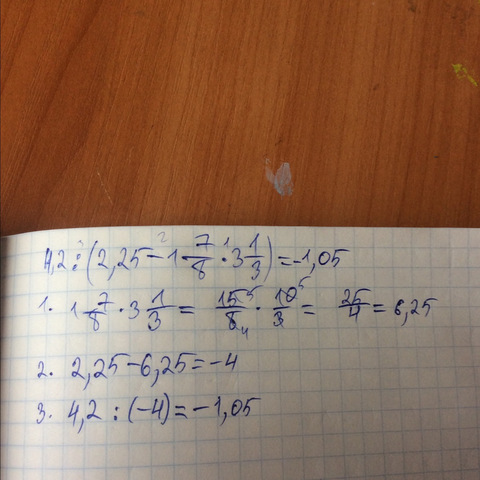 4,2 : (2,25 - 1 7/8 · 3 1/3) = -1,05
1. 1 7/8 · 3 1/3 = 15/8 · 10/3 = 25/4 = 6,25
2. 2,25 - 6,25 = -4
3. 4,2 : (-4) = -1,05